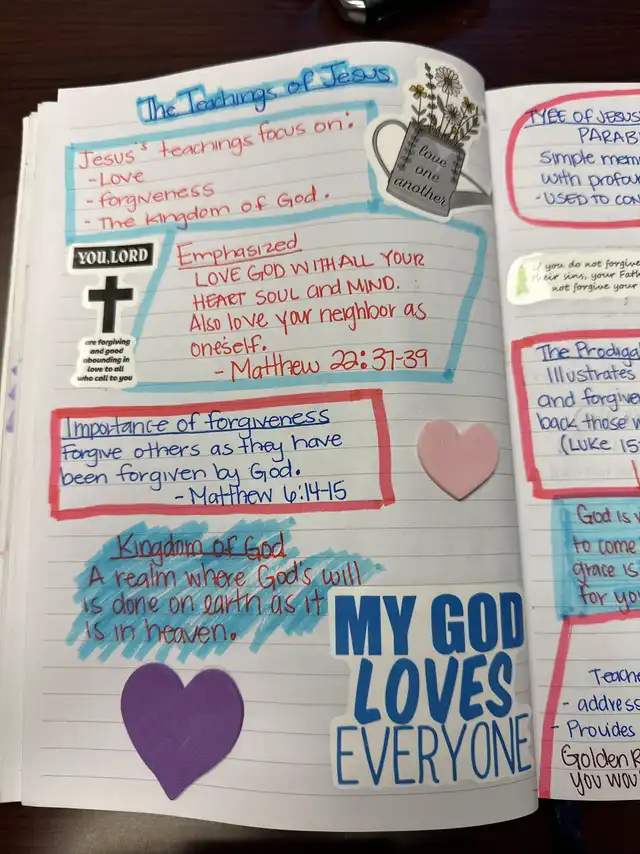 The Teachings of Jesus
Jesus's teachings focus on:
- Love
- forgiveness
- The kingdom of God.
love
one
another
YOU, LORD
are forgiving
and good
abounding in
love to all
who call to you
Emphasized
LOVE GOD WITH ALL YOUR
HEART SOUL and MIND.
Also love your neighbor as
oneself.
- Matthew 22:37-39
Importance of forgiveness
Forgive others as they have
been forgiven by God.
- Matthew 6:14-15
Kingdom of God
A realm where God's will
is done on earth as it
is in heaven.
MY GOD
LOVES
EVERYONE
TYPE OF JESUS
PARAB
simple mem
with profou
- USED TO CON
if you do not forgive
their sins, your Fath
not forgive your
The Prodiga
Illustrates
and forgive
back those w
(Luke 15:
God is
to come
grace is
for you
Teache
- address
- Provides
Golden R
you wou